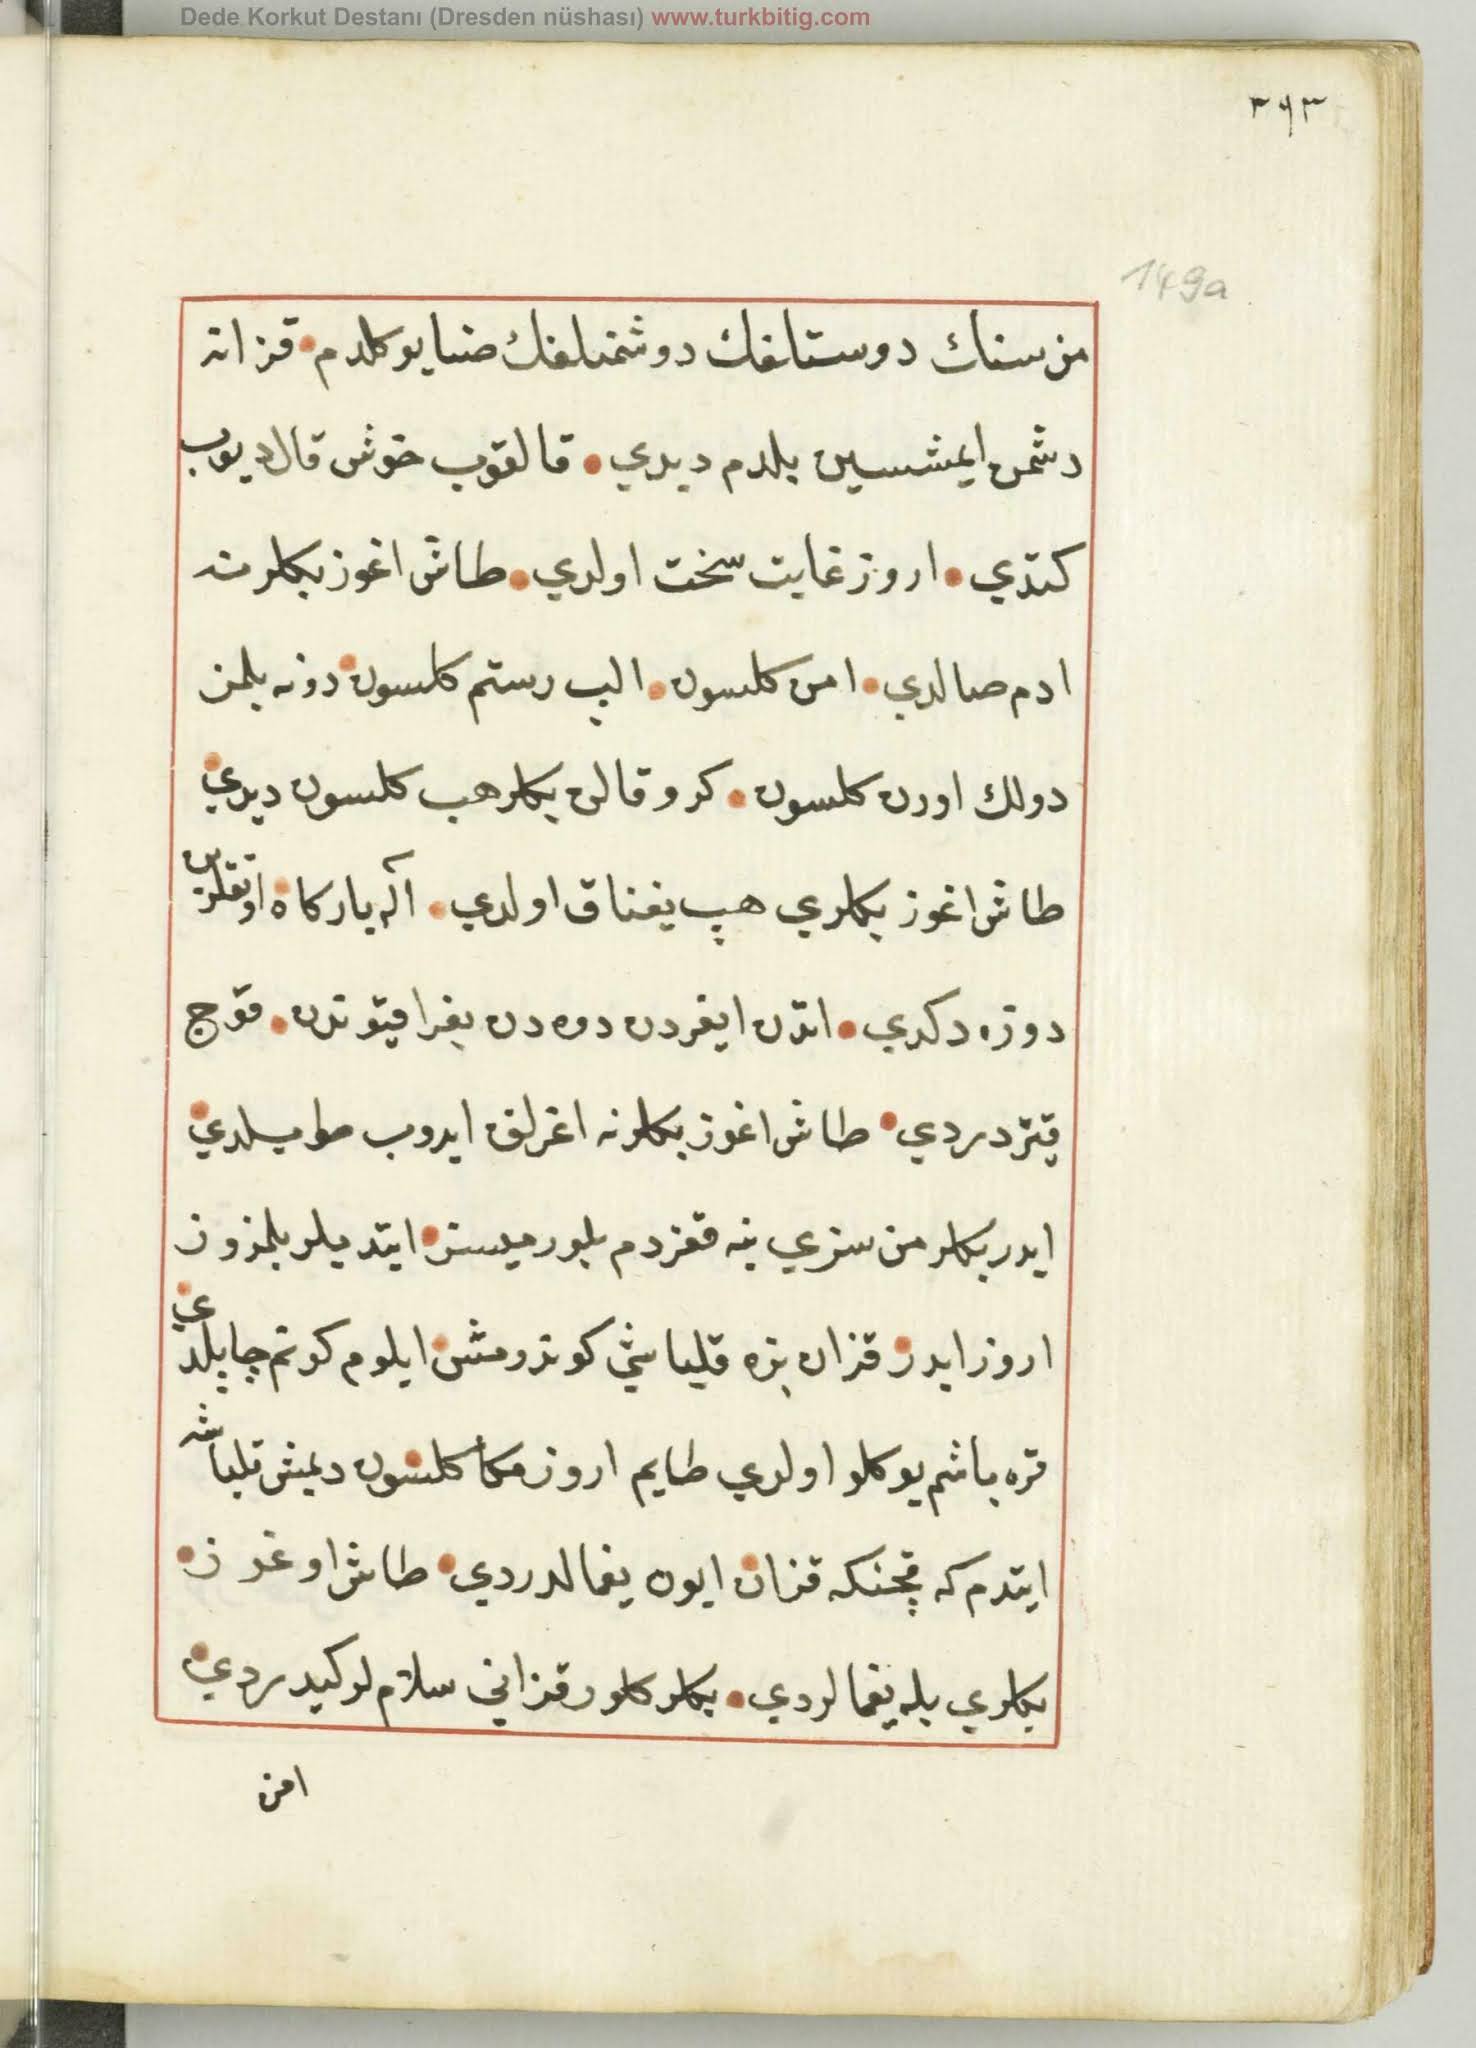 Dede Korkut Destanı (Dresden nüshası) www.turkbitig.com
٣٩٣
149a
من سنك دوستلغك دوشمنلغك صنايو كلدم قزانه
دشمن ايمشسين بلدم ديدي قالقوب خوش قال ديوب
كتدي اروز غايت سخت اولدي طاش اغوز بكلرينه
ادم صالدي امن كلسون الپ رستم كلسون دونه بلمز
دولك اورن كلسون كرو قالن بكلر هپ كلسون ديدي
طاش اغوز بكلري هپ يغناق اولدي اله باركاه اوتقلرين
دوزه دكدي اتدن ايغردن دوه دن بغرا قيتوندن قوج
قيردردي طاش اغوز بكلرنه اغرلق ايدوب صلويلدي
ايدر بكلر من سزي نيه قغردم بلورميسز ايتديلر بلمزوز
اروز ايدر قزان بزه قلباشي كوندرومش ايلوم كونم چاپلدي
قره باشم بوكلو اولدي طايم اروز مكا كلسون ديمش قلباشه
ايتدم كه قچنكه قزان ايون يغمالدردي طاش اوغوز
بكلري بله يغمالردي بكلر كلور قزاني سلاملر كيدردي
امن